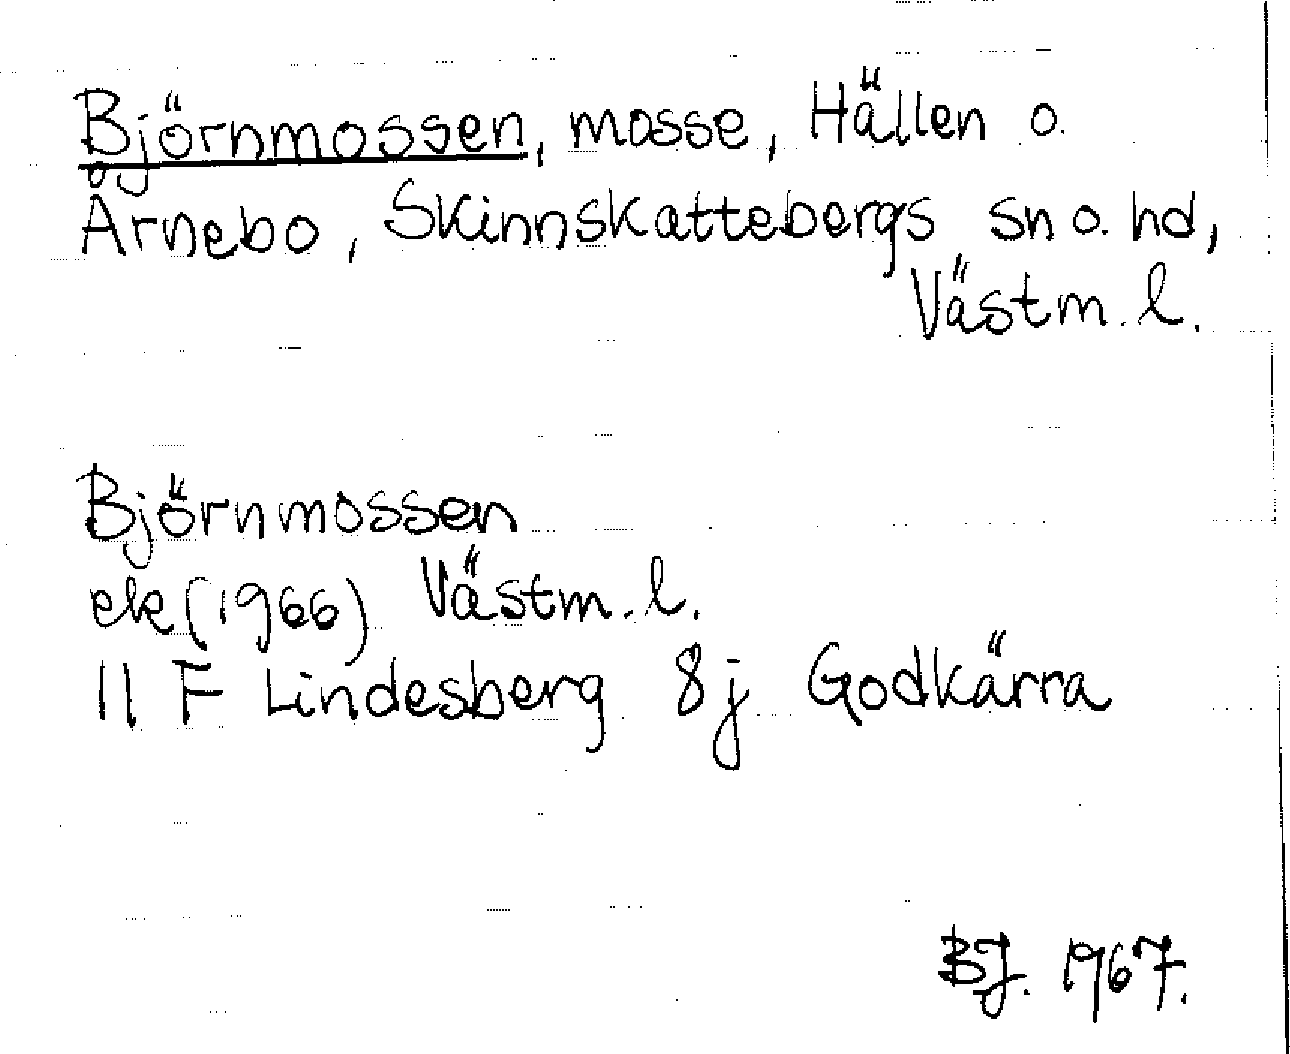 Björnmossen, mosse, Hällen o.
Årnebo, Skinnskattebergs sn o. hd,
Västm. l.
Björnmossen
ek (1966) Västm. l.
11 F Lindesberg 8 j Godkärra
BJ. 1967.